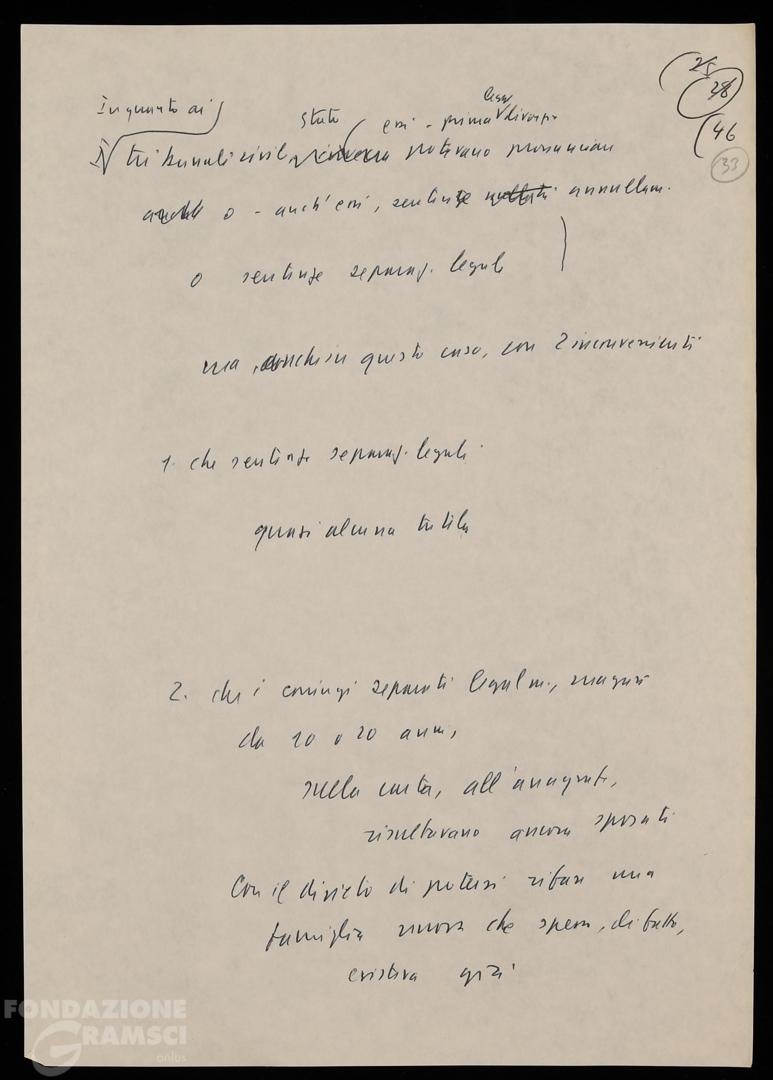 25
28
46
33
In quanto ai
Stato essi - prima legge divorzio
tribunali civili potevano pronunciare
o - anch'essi, sentenze annullam.
o sentenze separaz. legale
ma, anche in questo caso, con 2 inconvenienti
1. che sentenze separaz. legale
quasi alcuna tutela
2. che i coniugi separati legalm., magari
da 10 o 20 anni,
sulla carta, all'anagrafe,
risultavano ancora sposati
Con il divieto di potersi rifare una
famiglia nuova che spesso, di fatto,
esisteva già
FONDAZIONE
GRAMSCI
onlus